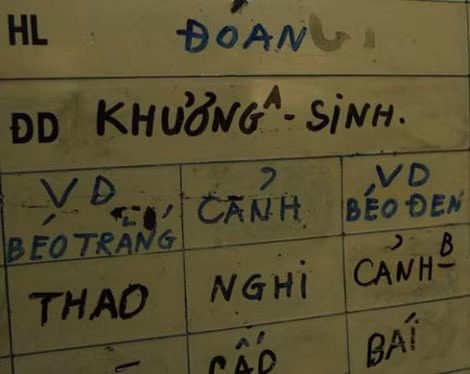 HL ĐOAN
ĐD KHƯỞNG A - SINH.
VD BÉO TRẮNG CẢNH VD BÉO ĐEN
THAO NGHI CẢNH B
CẤP BÁI